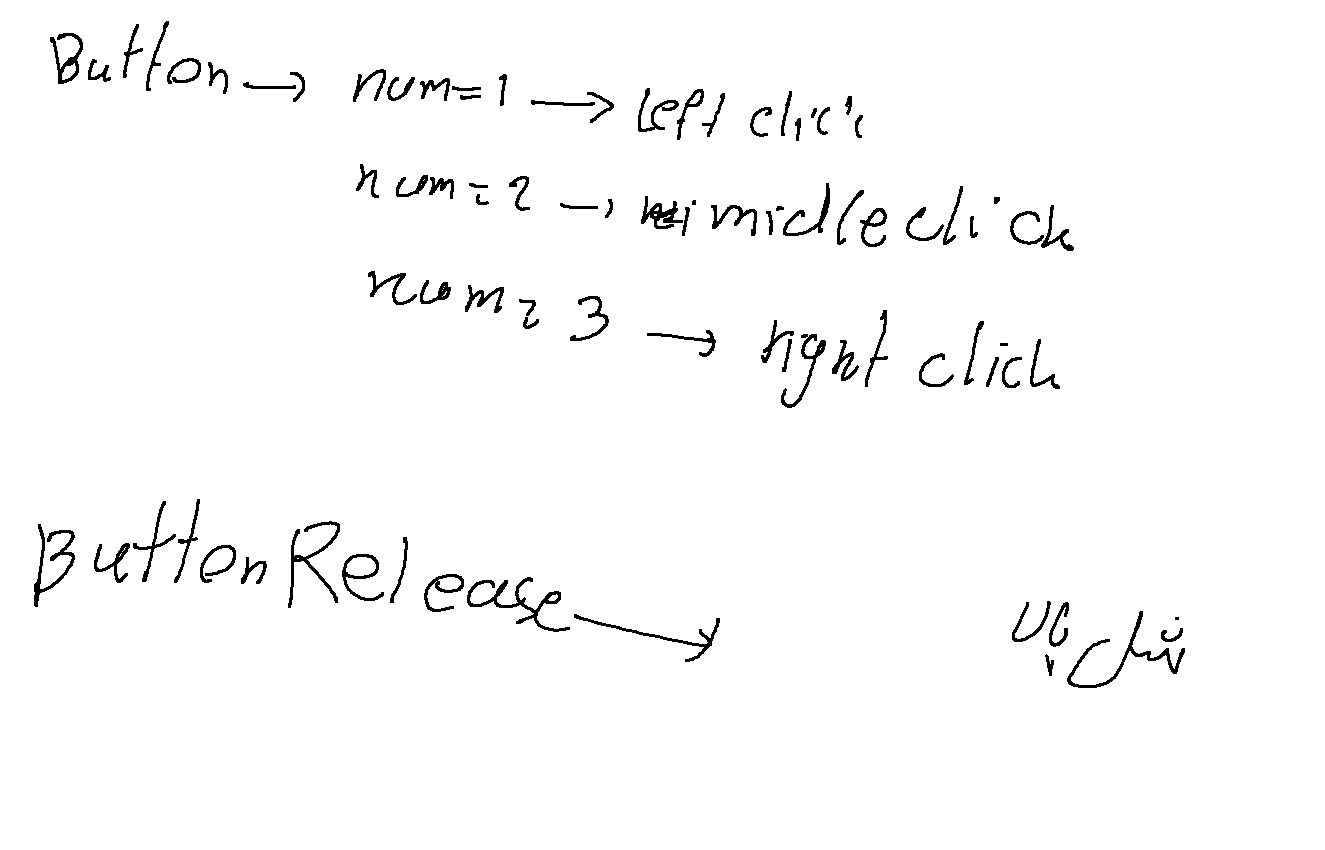 Button → num=1 → left click
num=2 → midle click
num=3 → right click
ButtonRelease →